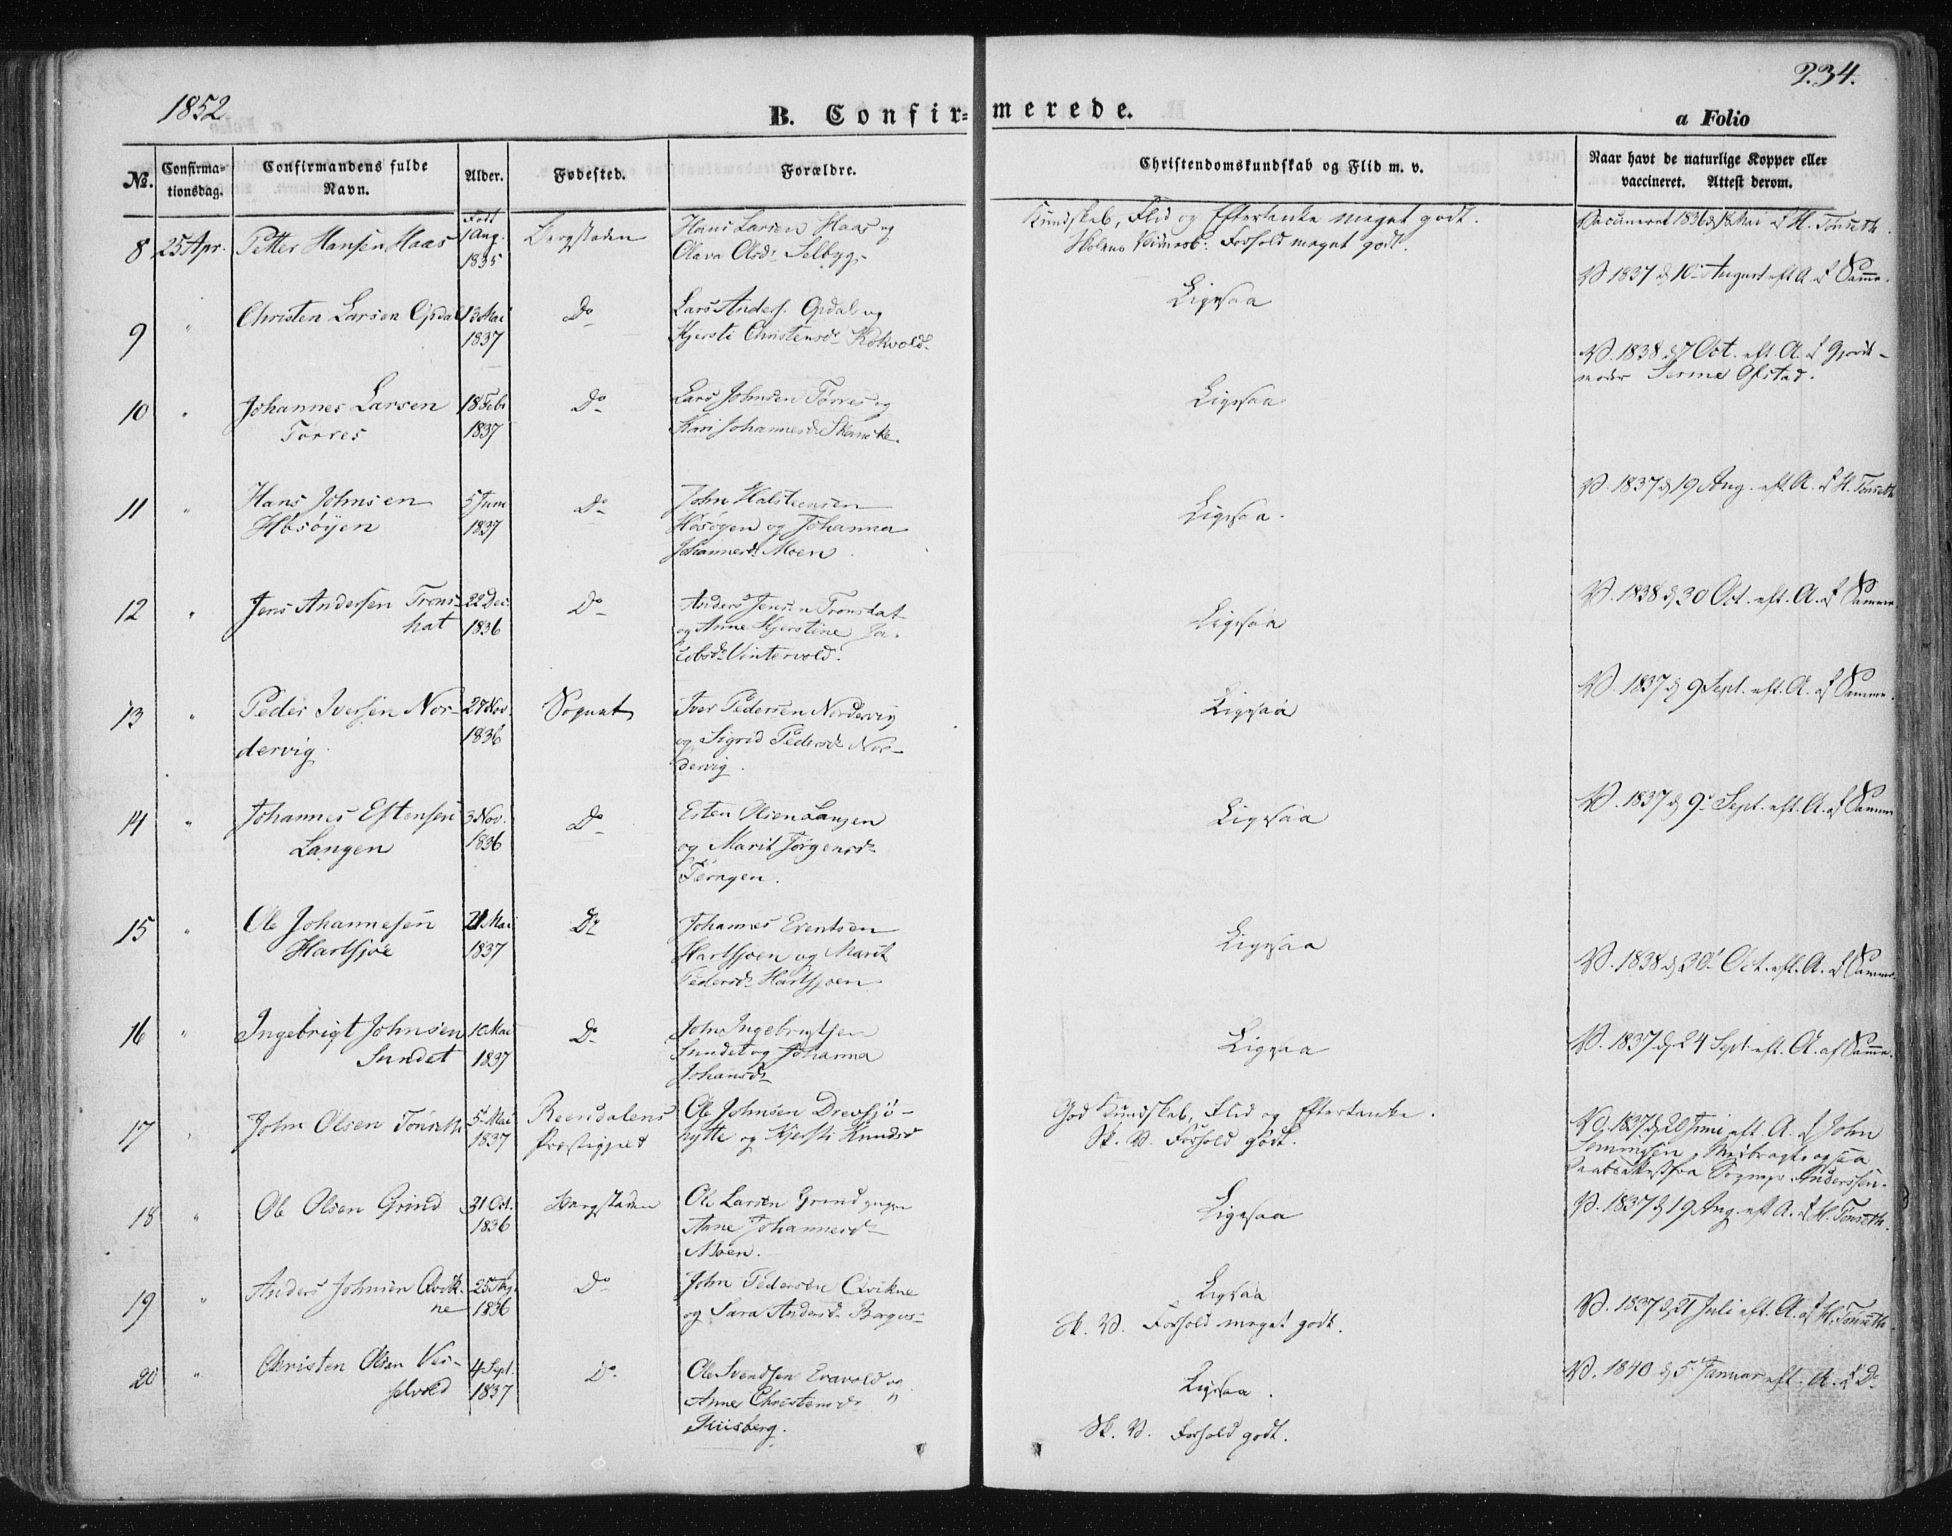 1852
B. Confir=merede.
234.
a Folio
№.
Confirma-
tionsdag.
Confirmandens fulde
Navn.
Alder.
Fødested.
Forældre.
Christendomskundskab og Flid m. v.
Naar havt de naturlige Kopper eller
vaccineret. Attest derom.
8 25 Apr. Petter Hansen Haas
Født
1 Aug.
1835
Bergstaden
Hans Larsen Haas og
Olava Olsdr Selbyg
Kundskab, Flid og Eftertanke meget godt.
Skolens Vidnesb. Forhold meget godt.
Vaccineret 1836 d 18 Mai af H. Tönseth.
9 " Christen Larsen Opdal
13 Mai
1837
Do
Lars Anders. Opdal og
Kjersti Christensdr Kokvold
Ligesaa
V. 1837 d 10 August eft. A. af Samme.
10 " Johannes Larsen
Torres
18 Feb
1837
Do
Lars Johnsen Torres og
Kari Johannesdr Skancke.
Ligesaa
V. 1838 d 7 Oct. eft. A. af Gjord-
moder Ofstad.
11 " Hans Johnsen
Høsöyen
5 Juni
1837
Do
John Halstensen
Høsöyen og Johanna
Johannesdr Moen.
Ligesaa.
V. 1837 d 19 Aug. eft. A. af H. Tönseth
12 " Jens Andersen Trons-
hat
22 Dec.
1836
Do
Anders Jensen Tronshat
og Anne Kjerstine Ja-
cobsdr Vintervold.
Ligesaa
V. 1838 d 30 Oct. eft. A. af Samme
13 " Peder Iversen Nor-
dervig.
27 Nov.
1836
Sognet
Iver Pedersen Nordervig
og Sigrid Pedersdr Nor-
dervig.
Ligesaa
V. 1837 d 9 Sept. eft. A. af Samme.
14 " Johannes Estensen
Langen
3 Nov.
1836
Do
Esten Olsen Langen
og Marit Jörgensdr
Feragen.
Ligesaa
V. 1837 d 9 Sept. eft. A. af Samme
15 " Ole Johannesen
Hartsjøe
21 Mai
1837
Do
Johannes Erentsen
Hartsjøen og Marit
Pedersdr Hartsjøen
Ligesaa
V. 1838 d 30 Oct. eft. A. af Samme.
16 " Ingebrigt Johnsen
Sundet
10 Mai
1837
Do
John Ingebrigtsen
Sundet og Johanna
Johansdr
Ligesaa
V. 1837 d 24 Sept. eft. A. af Samme.
17 " John Olsen Tönseth
5 Mai
1837
Reendalens
Præstegjeld
Ole Johnsen Drevsjö-
hytte og Kjersti Knudsd
God Kundskab, Flid og Eftertanke.
Sk. V. Forhold godt.
V. 1837 d 20 Juni eft. A. af John
Simensen, Medbragte ogsaa
Daabsattest fra Sogнеpr. Anderssen.
18 " Ole Olsen Grind
31 Oct.
1836
Bergstaden
Ole Larsen Grind og
Anne Johannesd
Moen.
Ligesaa
V. 1837 d 19 Aug. eft. A. af H. Tönseth.
19 " Anders Johnsen Qvik-
ne
25 Aug.
1836
Do
John Pedersen Qvikne
og Sara Andersdr Borgos
Ligesaa
Sk. V. Forhold meget godt.
V. 1837 d 21 Juli eft. A. af H. Tönseth.
20 " Christen Olsen Ves-
selvold
4 Sept.
1837
Do
Ole Svendsen Evavold og
Anne Christensdr
Fuusberg.
Ligesaa.
Sk. V. Forhold godt.
V. 1840 d 5 Januar eft. A. af Do